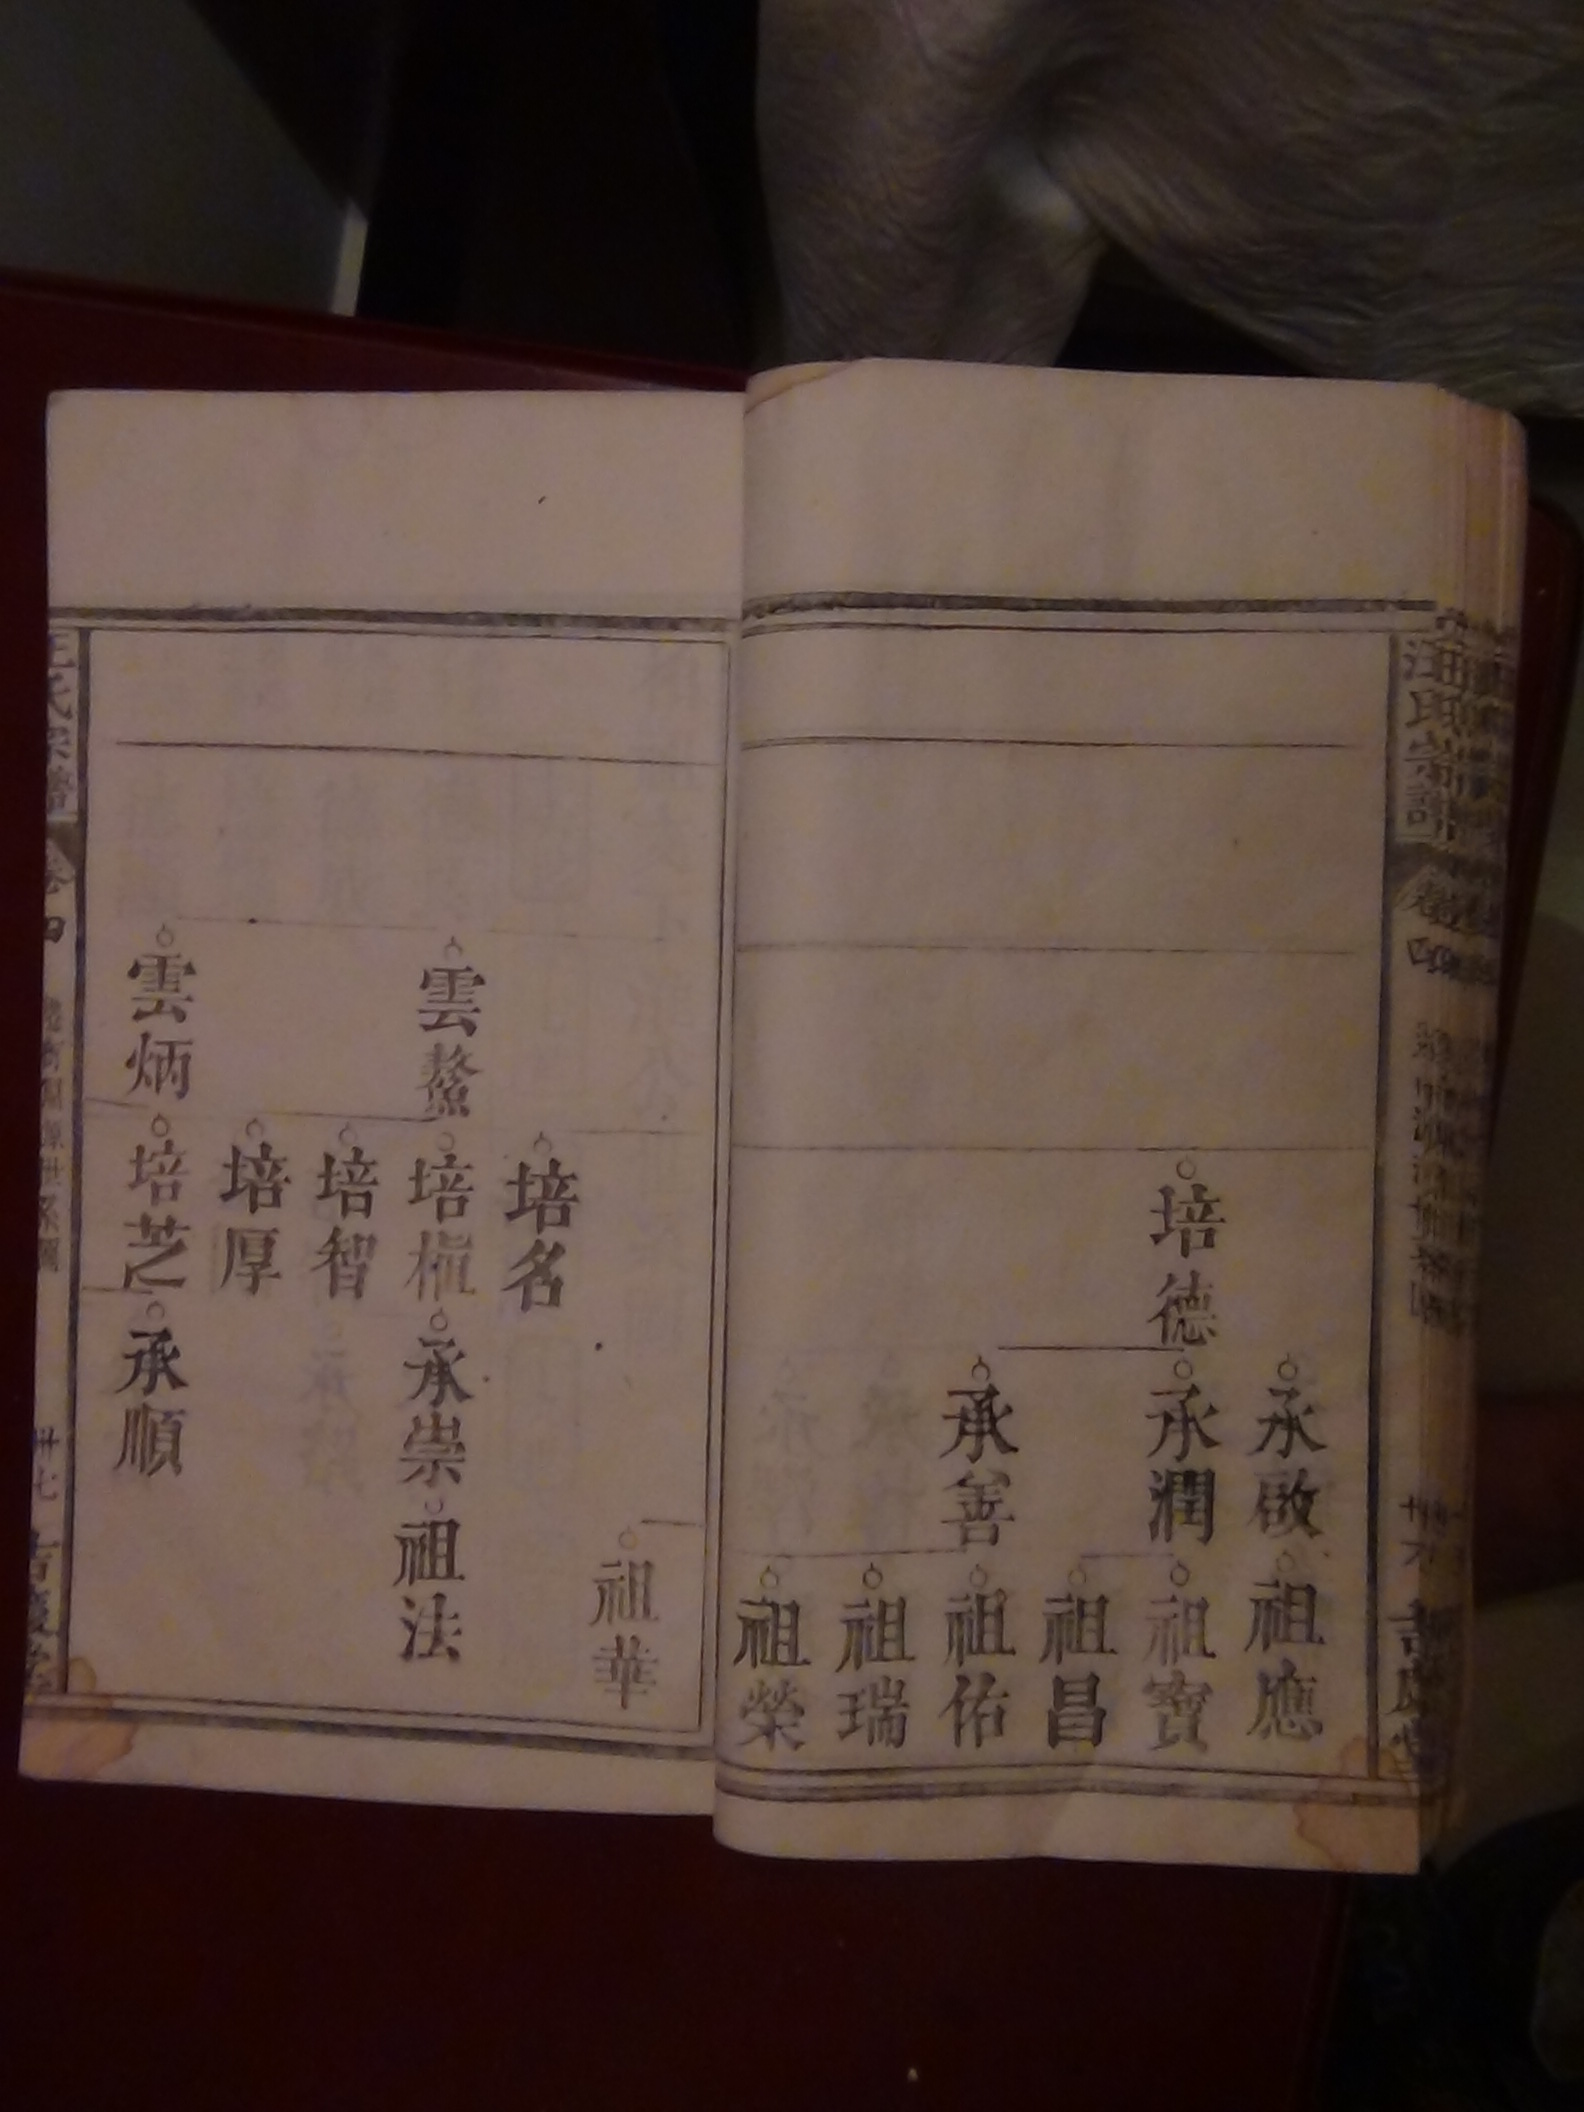 汪氏宗譜
卷四
承啟
祖應
培德
承潤
祖寶
祖昌
承善
祖佑
祖瑞
祖榮
祖華
培名
雲鰲
培楨
承崇
祖法
培智
培厚
雲炳
培芝
承順
氏宗譜
卷四
源世系圖
卅七